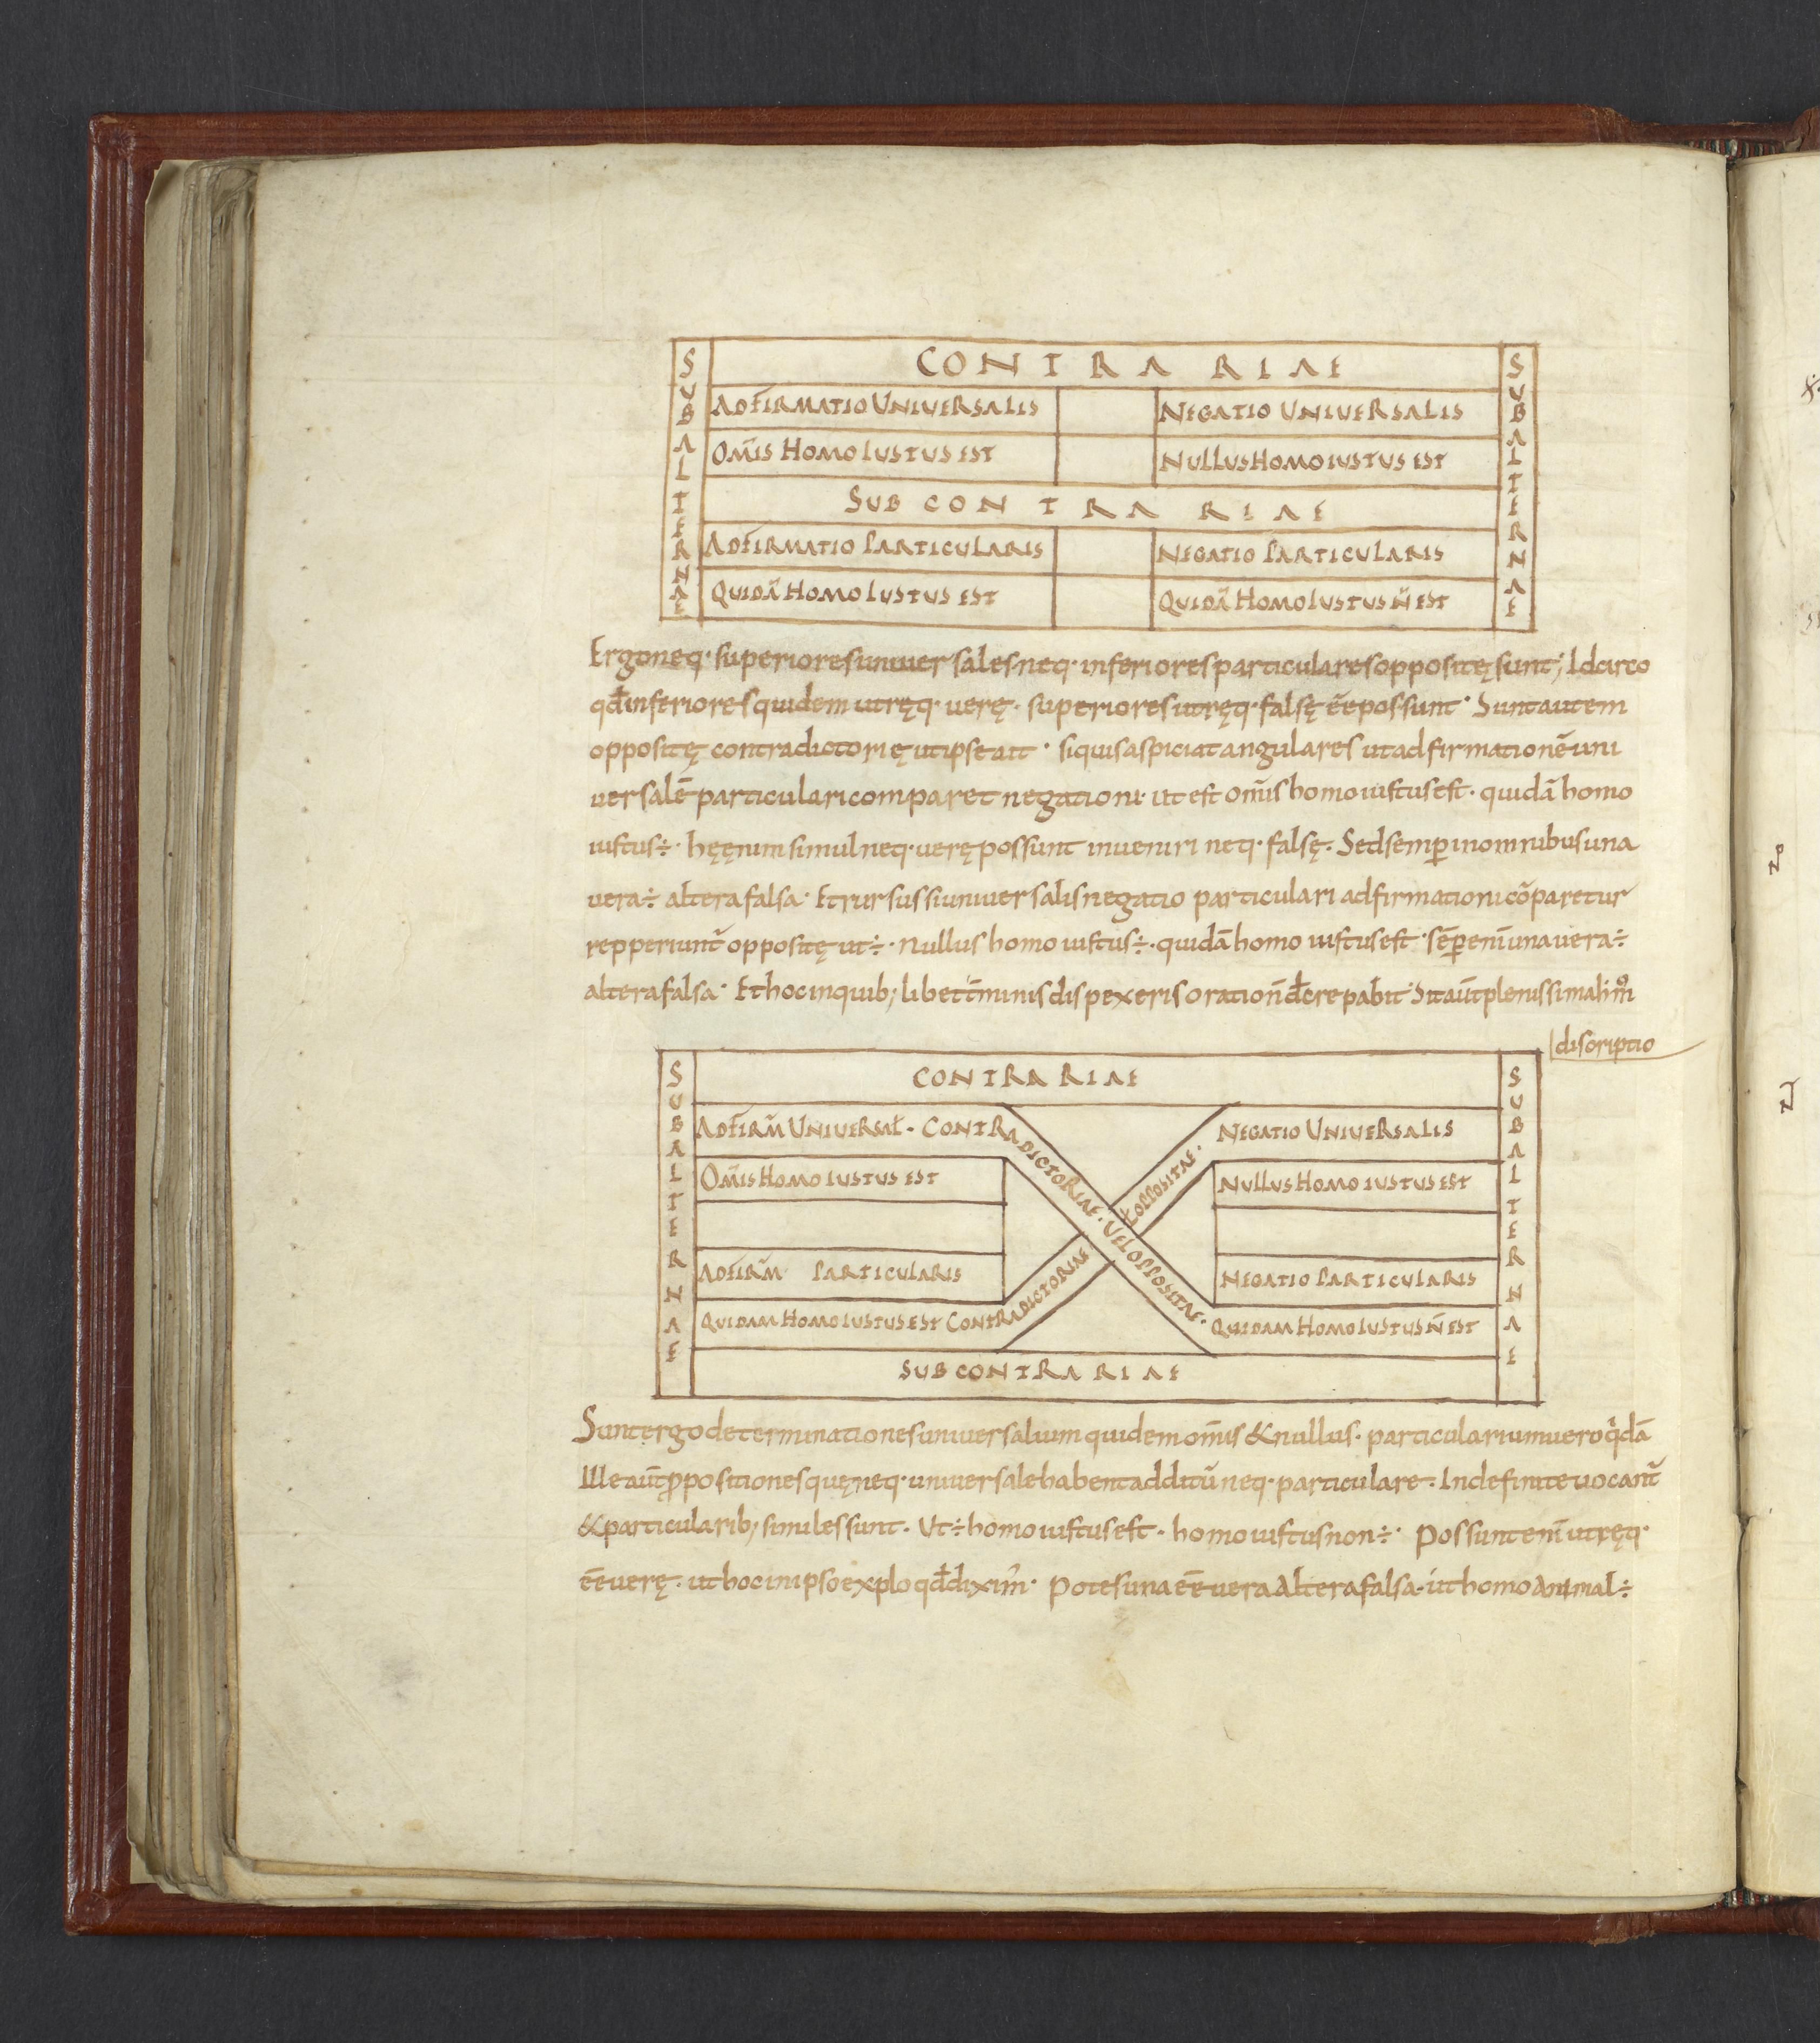 CONTRARIAE
SUBALTERNAE
SUBALTERNAE
ADFIRMATIO UNIVERSALIS
NEGATIO UNIVERSALIS
OM̄IS HOMO IUSTUS EST
NULLUS HOMO IUSTUS EST
SUBCONTRARIAE
ADFIRMATIO PARTICULARIS
NEGATIO PARTICULARIS
QUIDĀ HOMO IUSTUS EST
QUIDĀ HOMO IUSTUS N̄ EST
Ergo neq· superiores universales neq· inferiores particulares oppositę sunt; Idcirco
qđ inferiores quidem utręq· verę· superiores utręq· falsę ēē possunt· Sunt autem
oppositę contradictorię ut ipse ait· si quis aspiciat angulares ut adfirmationē uni
versalē particulari comparet negationi· ut est om̄is homo iustus est· quidā homo
iustus ÷· hę enim simul neq· verę possunt inveniri neq· falsę· Sed semp̄ in omnibus una
vera ÷ altera falsa· Et rursus si universalis negatio particulari adfirmationi cōparetur
repperiunt̄ oppositę ut ÷· nullus homo iustus ÷· quidā homo iustus est· sēp̄ enī una vera ÷
altera falsa· Et hoc in quib; libet t̄minis dispexeris
discriptio
CONTRARIAE
SUBALTERNAE
SUBALTERNAE
ADFIRM̄ UNIVERSAL̄· CONTRADICTORIAE· VEL OPPOSITAE·
NEGATIO UNIVERSALIS
Ł OPPOSITAE·
OM̄IS HOMO IUSTUS EST
NULLUS HOMO IUSTUS EST
ADFIRM̄ PARTICULARIS
NEGATIO PARTICULARIS
QUIDAM HOMO IUSTUS EST CONTRADICTORIAE
QUIDAM HOMO IUSTUS N̄ EST
SUBCONTRARIAE
Sunt ergo determinationes universalium quidem om̄is & nullus· particularium vero q̇dā
Ille aut̄ p̄positiones quę neq· universale habent additū neq· particulare· Indefinite vocant̄
& particularib; similes sunt· Ut ÷ homo iustus est· homo iustus non ÷· Possunt enī utręq·
ēē verę· ut hoc in ipso explo qđ dixim̄· Potes una ēē vera altera falsa· ut homo animal ÷